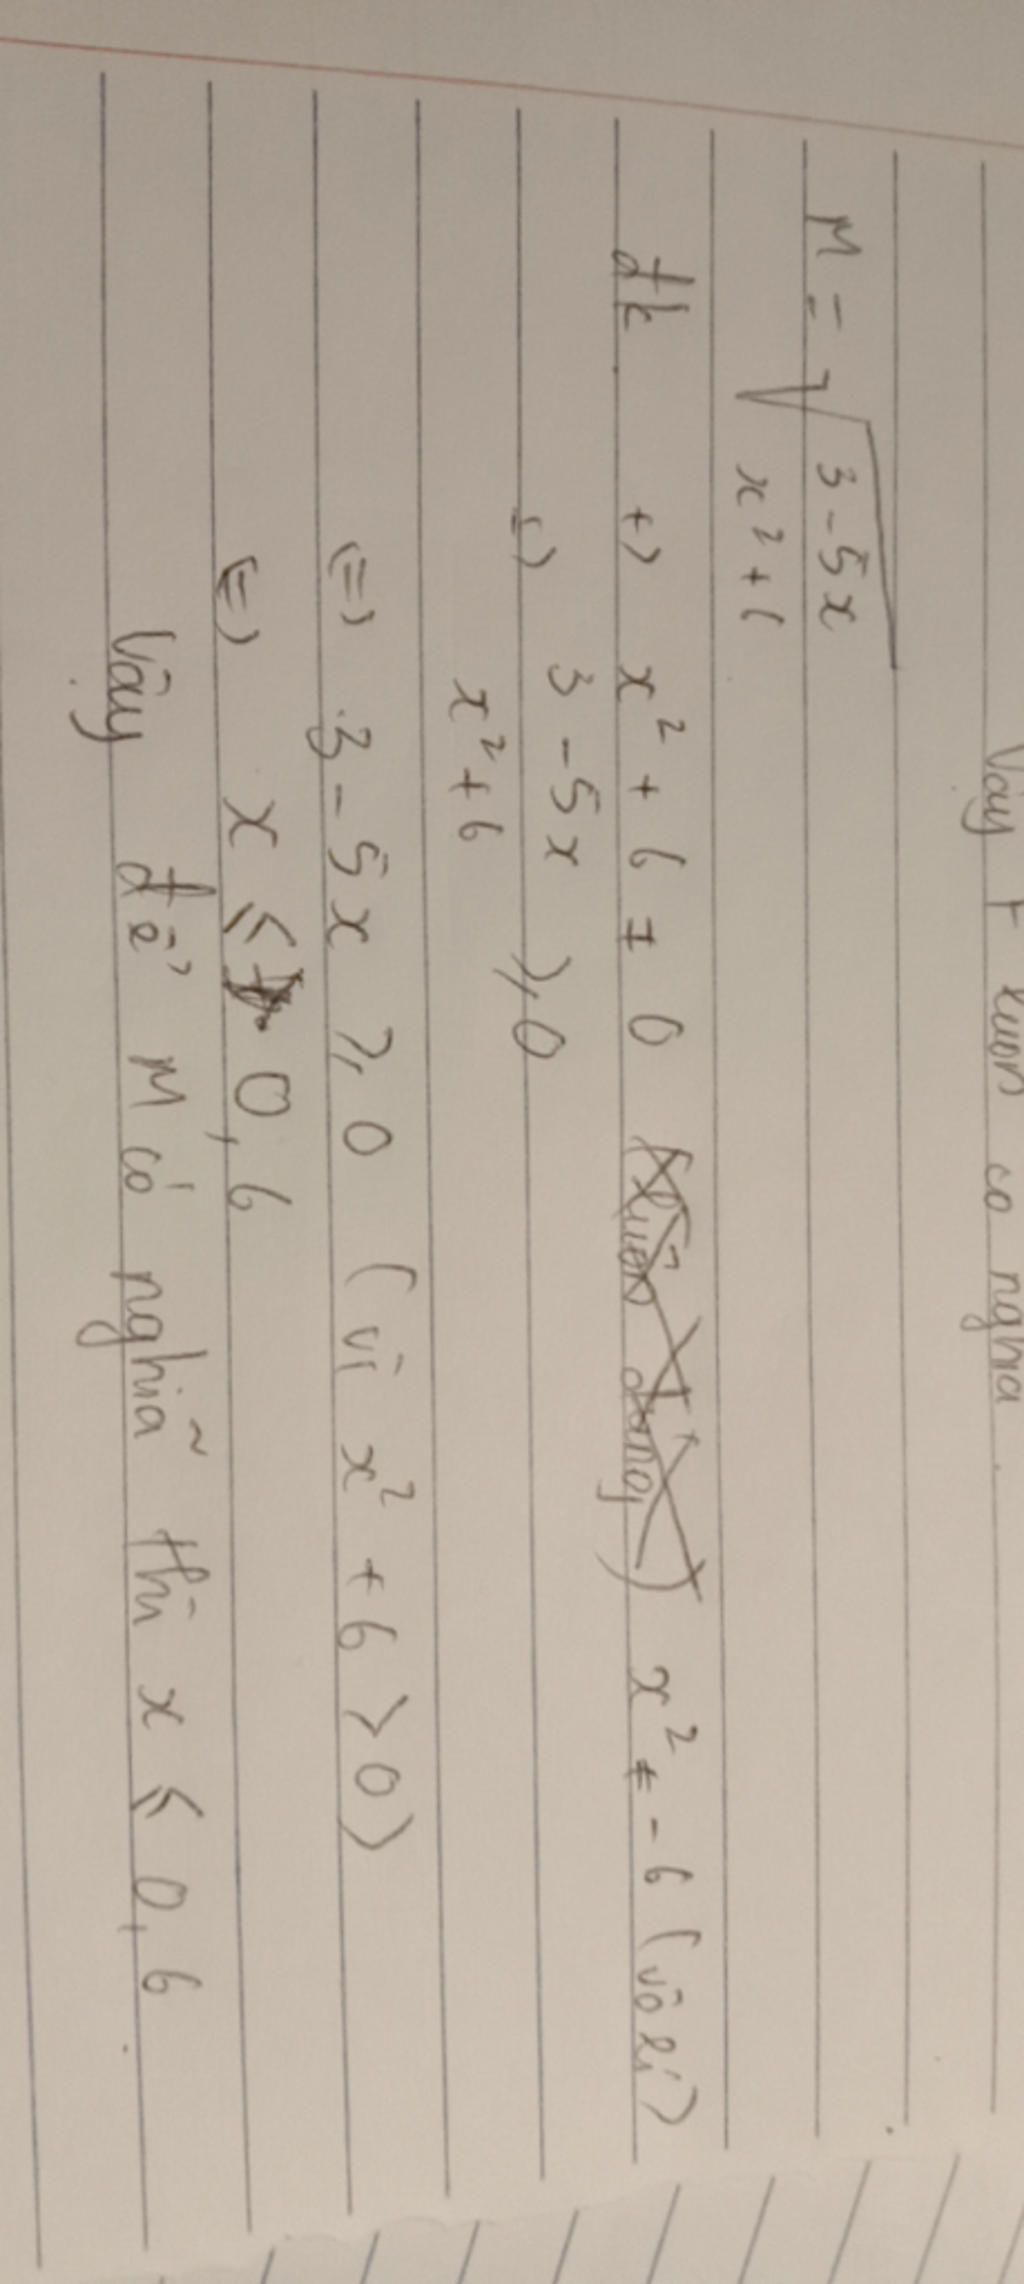 Vậy F luôn có nghĩa.
M = √(3 - 5x / x² + 6)
đk +) x² + 6 ≠ 0 (luôn đúng) x² ≠ -6 (vô lí)
+) 3 - 5x / x² + 6 ⩾ 0
(=) 3 - 5x ⩾ 0 (vì x² + 6 > 0)
(=) x ⩽ 0,6
Vậy để M có nghĩa thì x ⩽ 0,6.